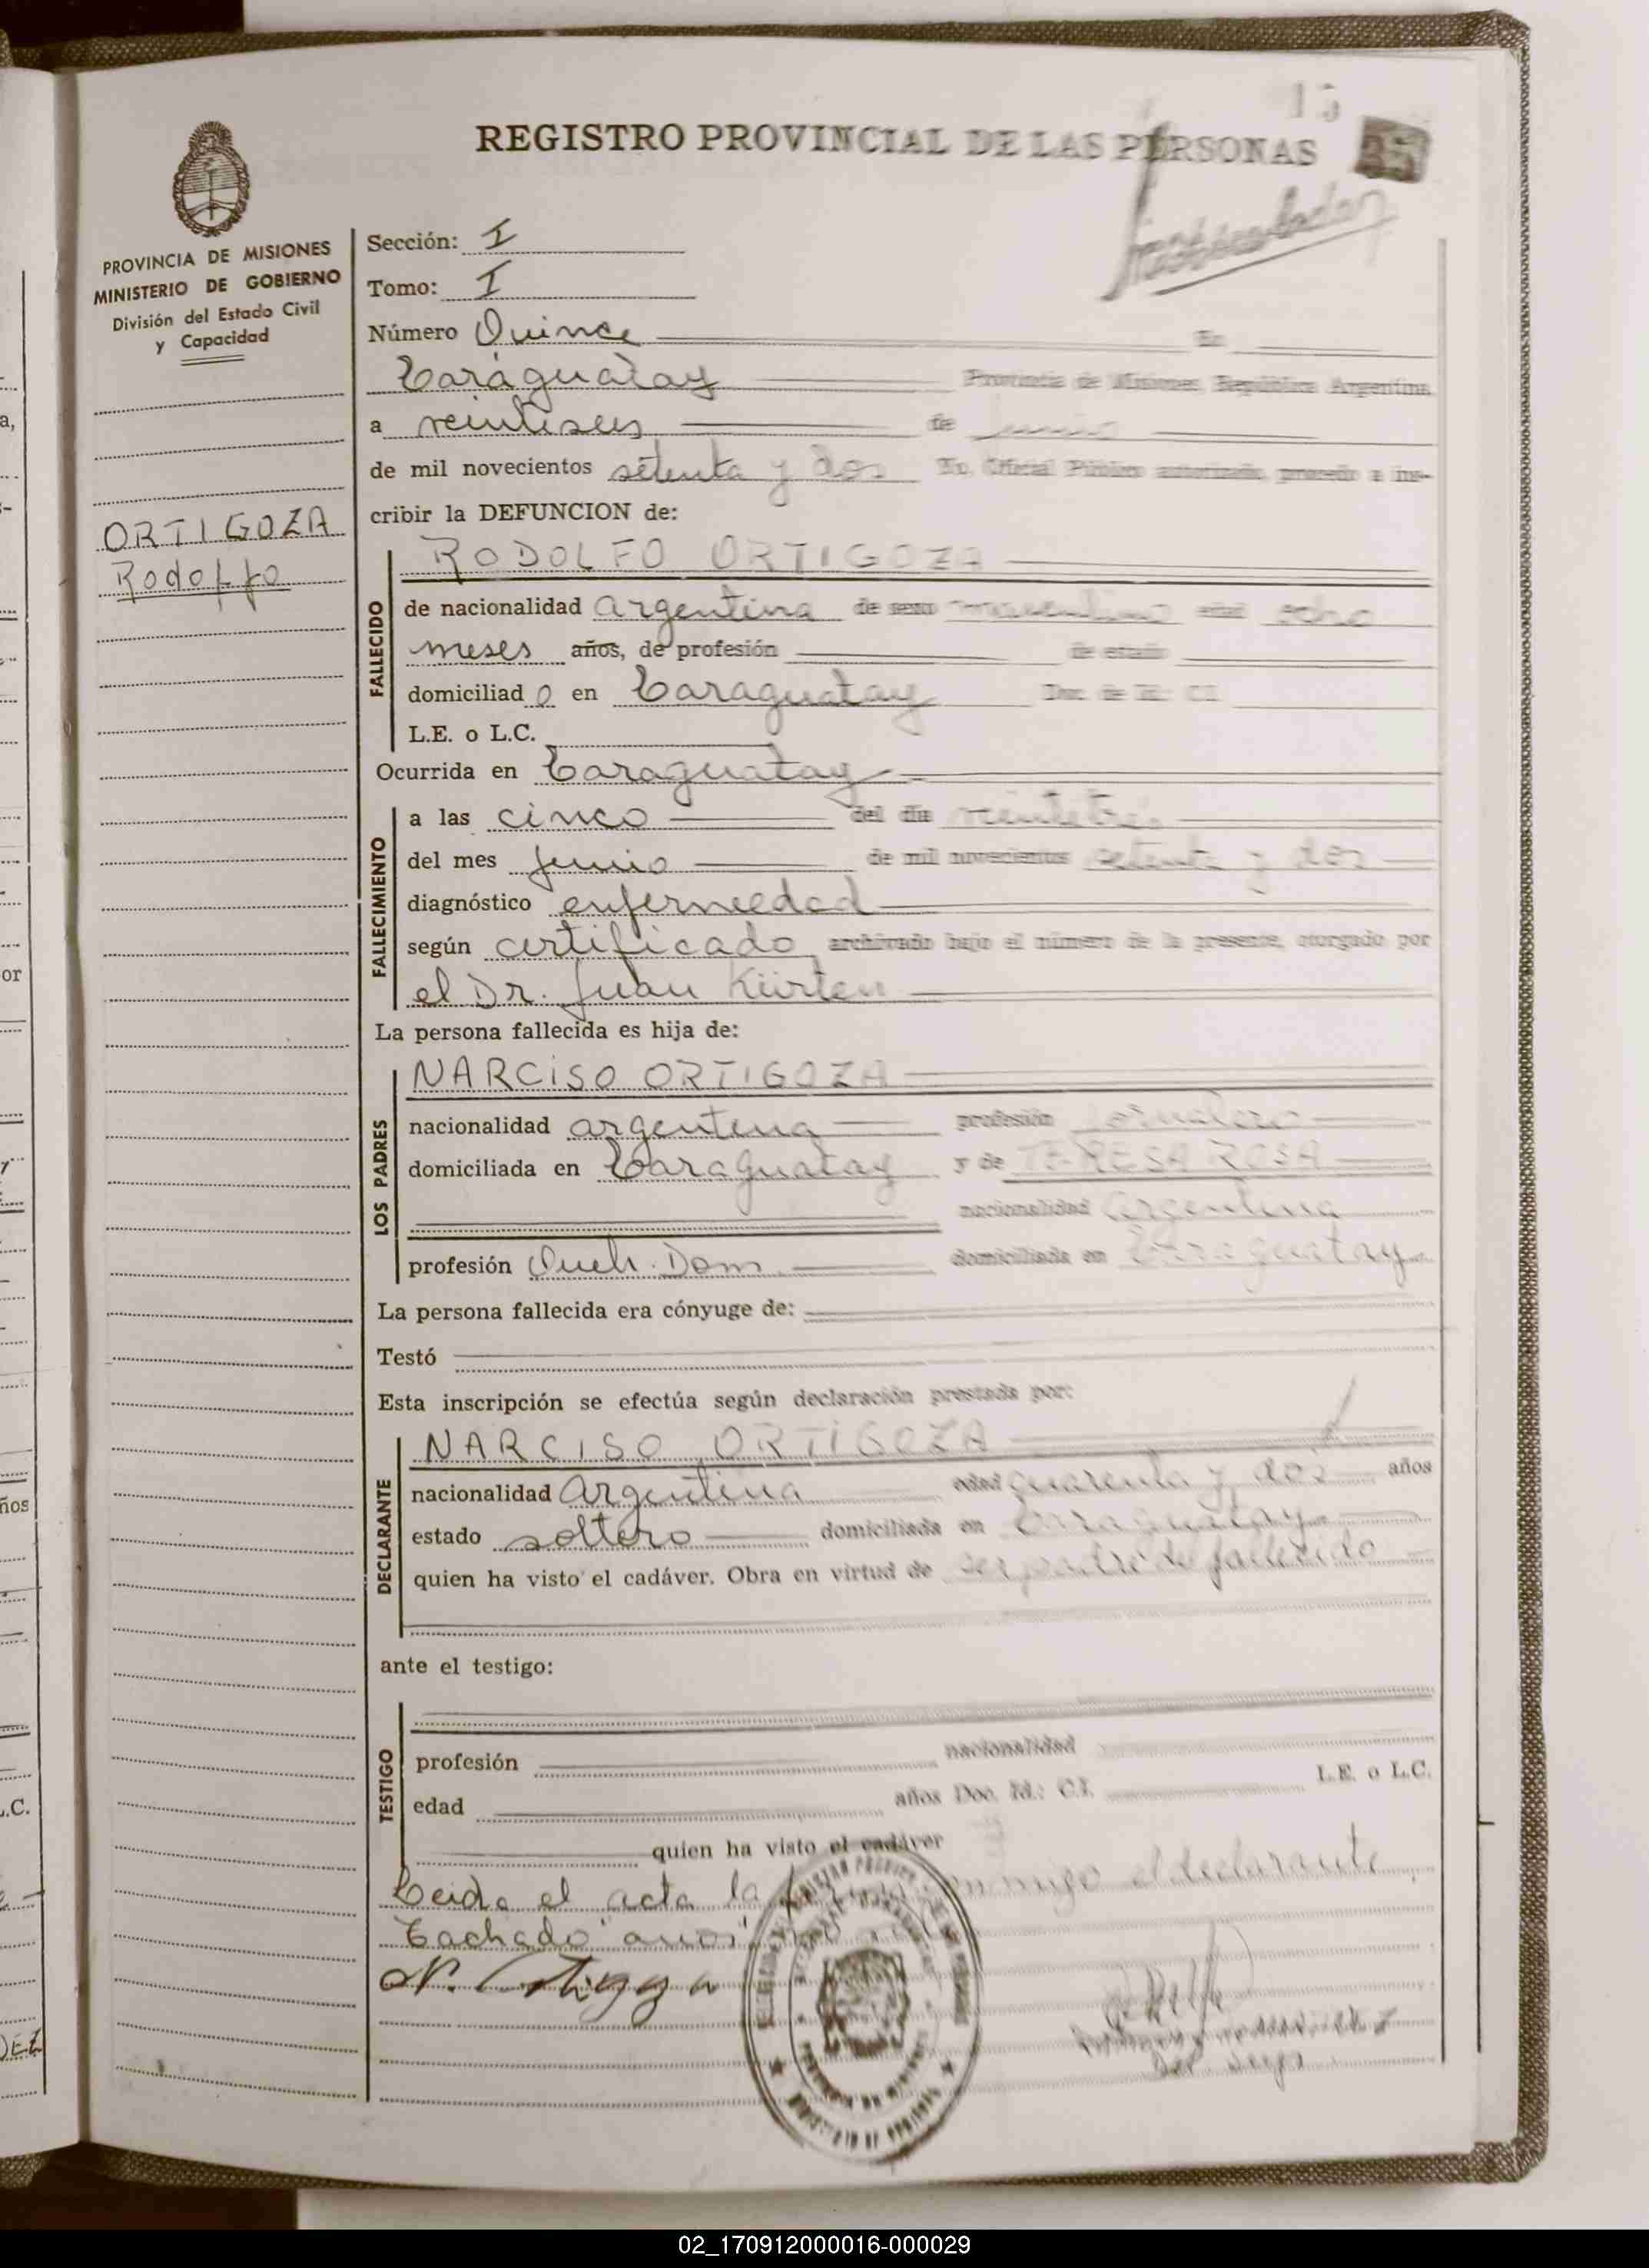 15
REGISTRO PROVINCIAL DE LAS PERSONAS
PROVINCIA DE MISIONES
MINISTERIO DE GOBIERNO
División del Estado Civil
y Capacidad
ORTIGOZA
Rodolfo
Sección: I
Tomo: I
Número Quince En
Caraguatay Provincia de Misiones, República Argentina
a veintiseis de junio
de mil novecientos setenta y dos Yo, Oficial Público autorizado, procedo a ins-
cribir la DEFUNCION de:
FALLECIDO
RODOLFO ORTIGOZA
de nacionalidad argentina de sexo masculino edad ocho
meses años, de profesión de estado
domiciliad o en Caraguatay Doc. de Id.: C.I.
L.E. o L.C.
Ocurrida en Caraguatay
FALLECIMIENTO
a las cinco del día veintitrés
del mes junio de mil novecientos setenta y dos
diagnóstico enfermedad
según certificado archivado bajo el número de la presente, otorgado por
el Dr. Juan Kürten
La persona fallecida es hija de:
LOS PADRES
NARCISO ORTIGOZA
nacionalidad argentina profesión Jornalero
domiciliada en Caraguatay y de TERESA ROSA
nacionalidad argentina
profesión Queh. Dom domiciliada en Caraguatay
La persona fallecida era cónyuge de:
Testó
Esta inscripción se efectúa según declaración prestada por:
DECLARANTE
NARCISO ORTIGOZA
nacionalidad Argentina edad cuarenta y dos años
estado soltero domiciliada en Caraguatay
quien ha visto el cadáver. Obra en virtud de ser padre del fallecido
ante el testigo:
TESTIGO
profesión nacionalidad
edad años Doc. Id.: C.I. L.E. o L.C.
quien ha visto el cadáver
Leida el acta la conmigo el declarante
Tachado "años"
N. Ortigoza
02_170912000016-000029